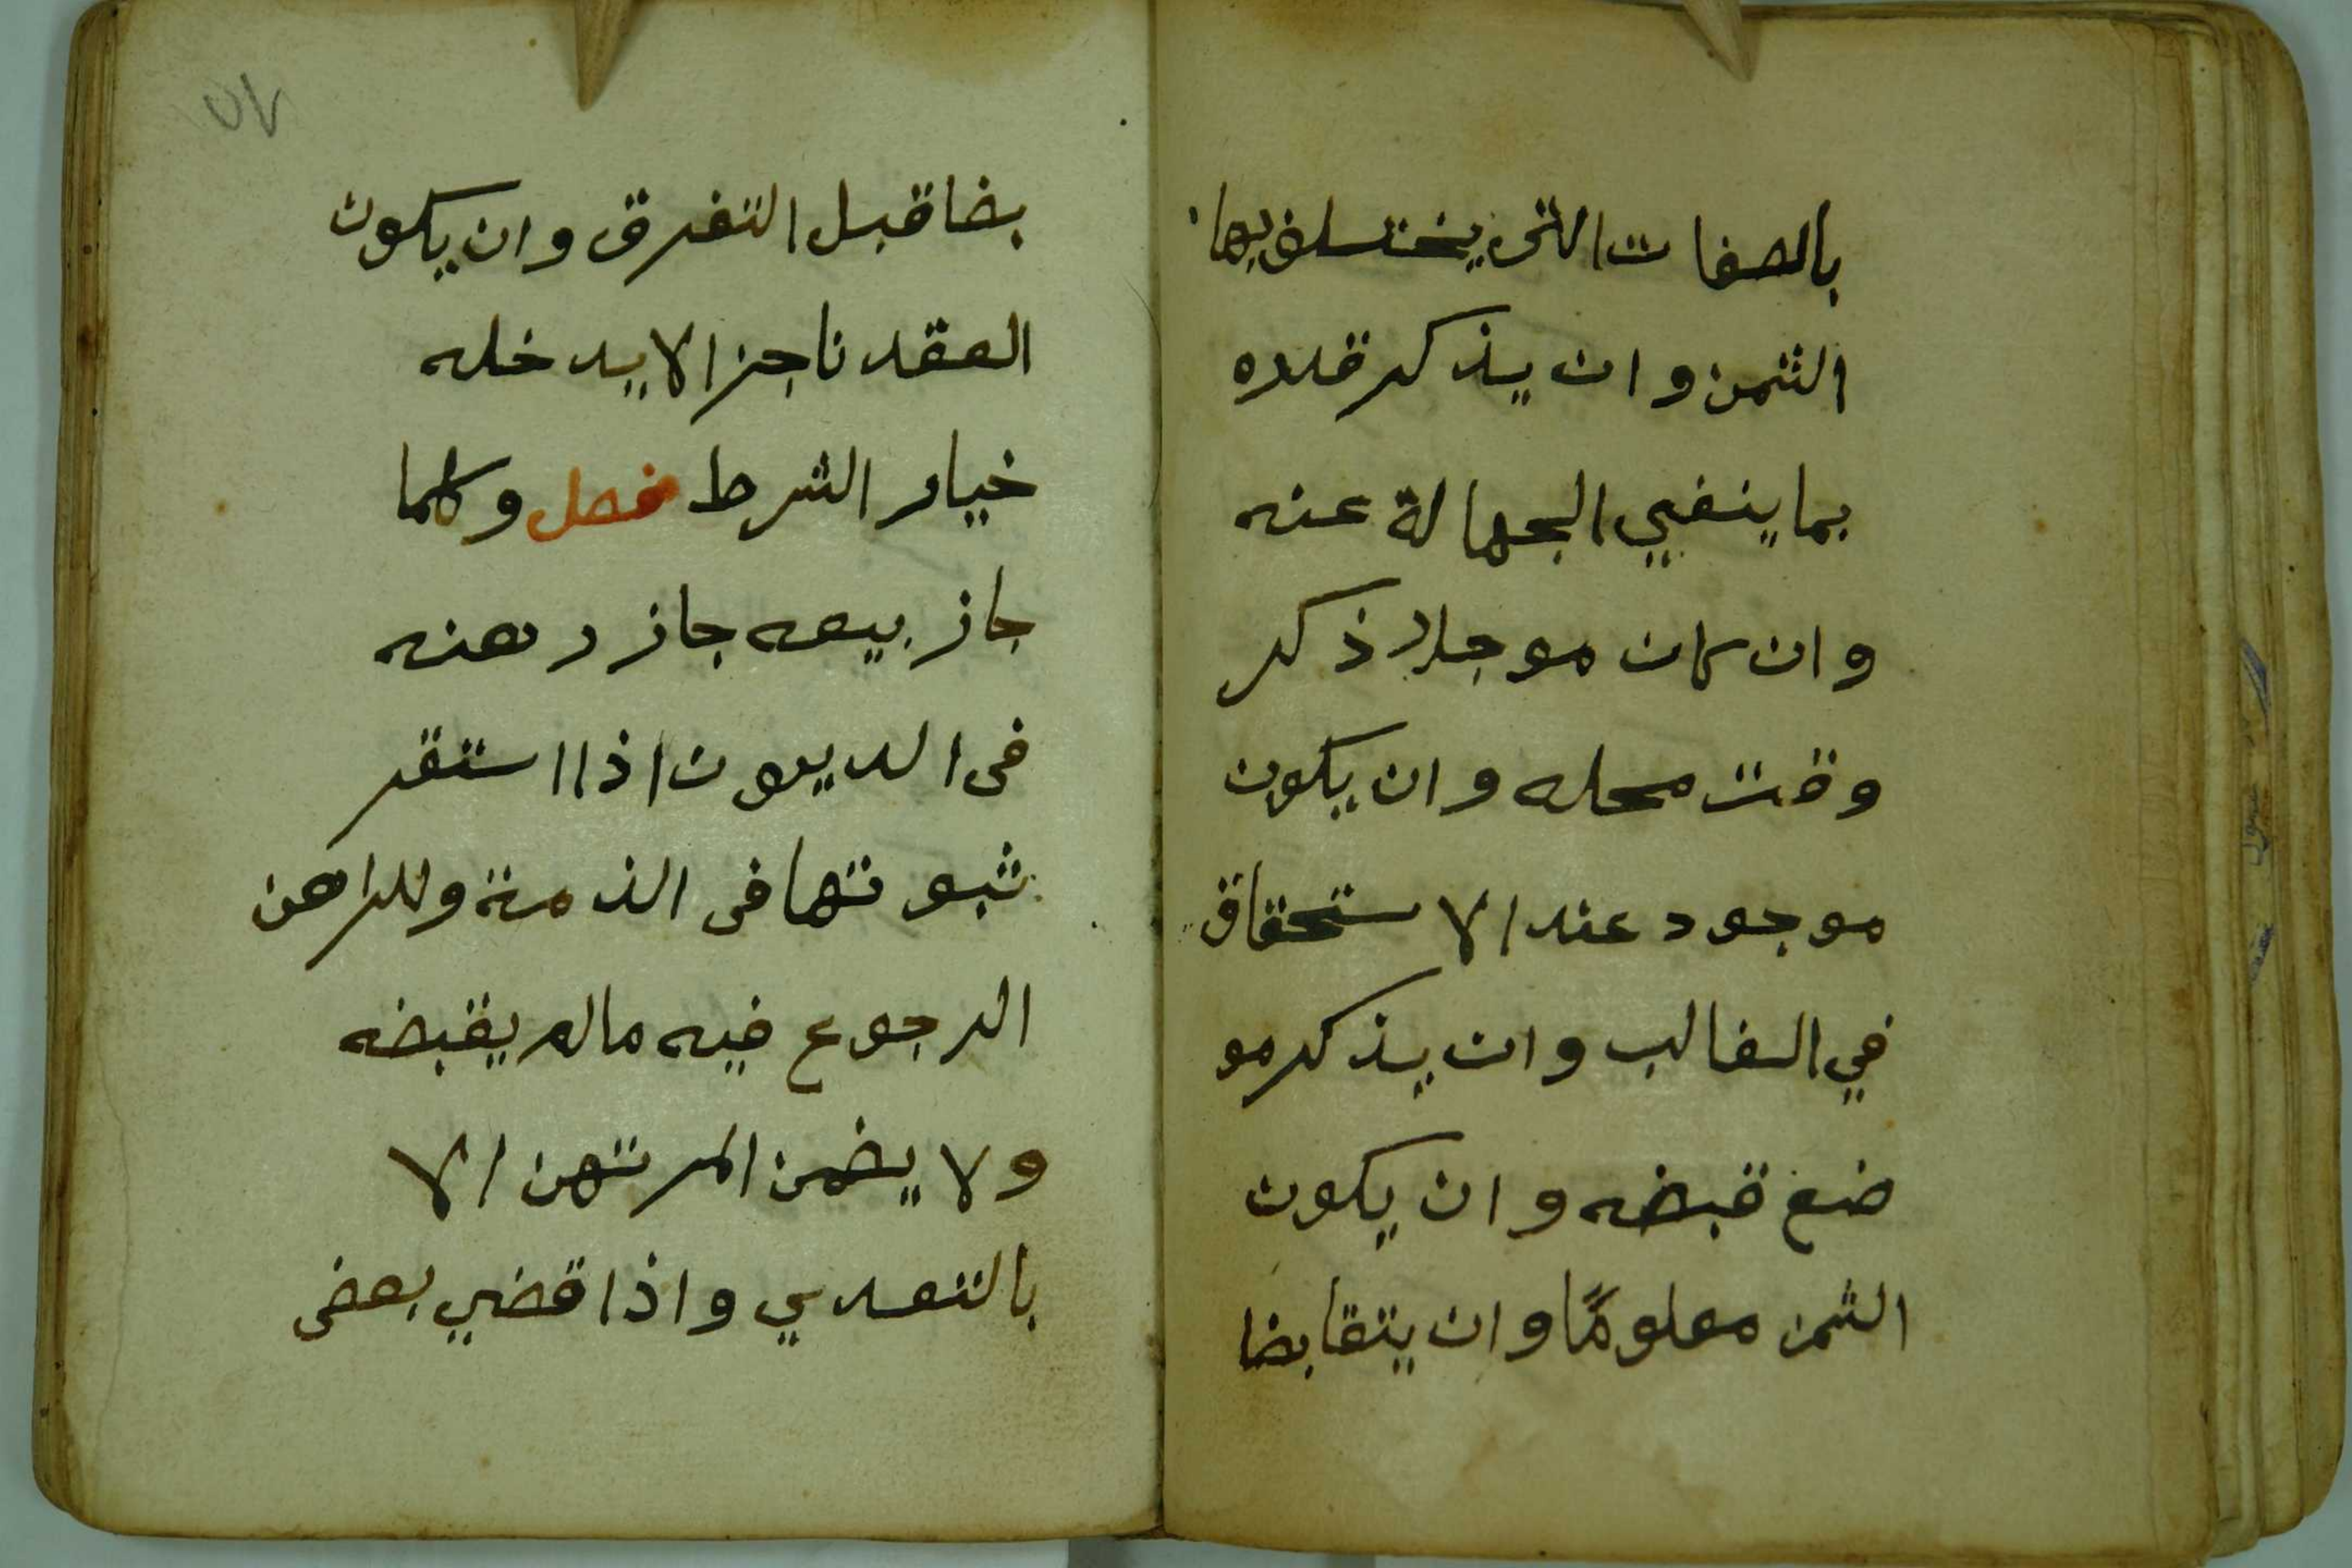 بالصفات التي يختلف بها
الثمن وان يذكر قدره
بما ينفي الجهالة عنه
وان كان موجلا ذكر
وقت محله وان يكون
موجود عند الاستحقاق
في الغالب وان يذكر مو
ضع قبضه وان يكون
الثمن معلومًا وان يتقابضا
٥٧
بضا قبل التفرق وان يكون
العقد ناجزا لا يدخله
خيار الشرط فصل وكلما
جاز بيعه جاز رهنه
فى الديون اذا استقر
ثبوتها فى الذمة وللراهن
الرجوع فيه مالم يقبضه
ولا يضمن المرتهن الا
بالتعدي واذا قضي بعض